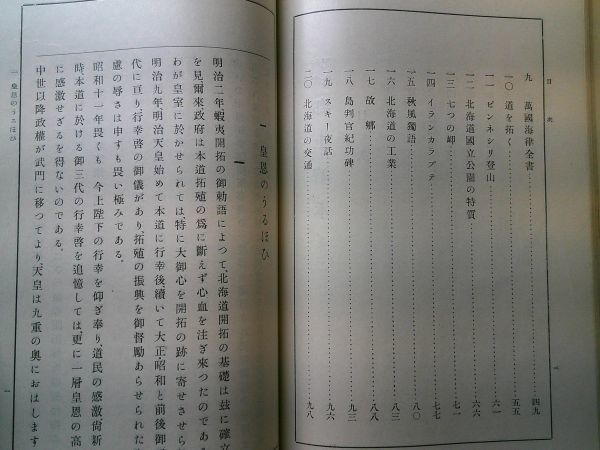 目次
九 萬國海律全書 四九
一〇 道を拓く 五五
一一 ピンネシリ登山 六一
一二 北海道國立公園の特質 六六
一三 七つの岬 七一
一四 イランカラプテ 七七
一五 秋風獨語 八〇
一六 北海道の工業 八三
一七 故郷 八八
一八 島判官紀功碑 九三
一九 スキー夜話 九六
二〇 北海道の交通 九八
一 皇恩のうるほひ
一
明治二年蝦夷開拓の御勅語によつて、北海道開拓の基礎は玆に確立
を見、爾來政府は本道拓殖の爲に斷えず心血を注ぎ來つたのであ
わが皇室に於かせられては、特に大御心を開拓の跡に寄せさせら
明治九年、明治天皇始めて本道に行幸後續いて大正・昭和と前後御
代に亘り行幸啓の御儀があり、拓殖の振興を御督勵あらせられた
慮の辱さは申すも畏い極みである。
昭和十一年畏くも 今上陛下の行幸を仰ぎ奉り、道民の感激尙新
時、本道に於ける御三代の行幸啓を追憶しては、更に一層皇恩の高
に感激せざるを得ないのである。
中世以降政權が武門に移つてより、天皇は九重の奧におはします
一 皇恩のうるほひ
一